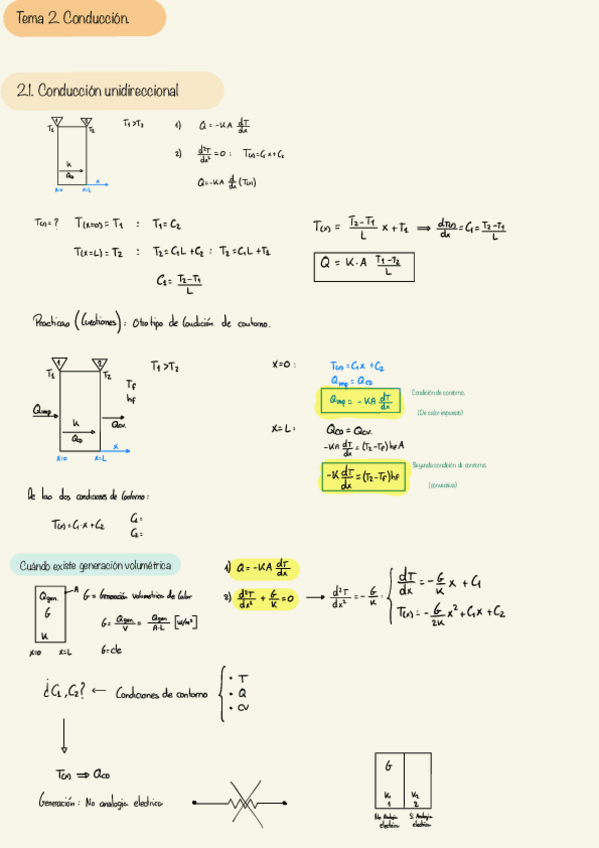 Tema 2. Conducción.
2.1. Conducción unidireccional
T₁ T₂ T₁>T₂
1) Q=-KA dT/dx
2) d²T/dx²=0 : T(x)=C₁x+C₂
K
Q_CD
x
x=0 x=L
Q=-KA d/dx (T(x))
T(x)=? T(x=0)=T₁ : T₁=C₂
T(x)= (T₂-T₁)/L x+T₁ ⟹ dT(x)/dx=C₁=(T₂-T₁)/L
T(x=L)=T₂ : T₂=C₁L+C₂ : T₂=C₁L+T₁
C₁=(T₂-T₁)/L
Q=K·A (T₁-T₂)/L
Practicas (Cuestiones): Otro tipo de Condición de contorno.
1 2
T₁ T₂ T₁>T₂
T_f
h_f
Q_imp
Q_cv.
K
Q_CD
x
x=0 x=L
x=0: T(x)=C₁x+C₂
Q_imp=Q_CD
Q_imp=-KA dT/dx
Condición de contorno.
(De calor impuesto)
x=L: Q_CD=Q_cv.
-KA dT/dx=(T₂-T_f)h_f A
-K dT/dx=(T₂-T_f)h_f
Segunda condición de contorno
(convectiva)
De las dos condiciones de Contorno:
T(x)=C₁·x+C₂ C₁=
C₂=
Cuándo existe generación volumétrica
Q_gen.
G
K
x=0 x=L
A G=Generación volumétrica de Calor
G=Q_gen/V=Q_gen/(A·L) [W/m³]
G=cte
1) Q=-KA dT/dx
2) d²T/dx²+G/K=0 ⟶ d²T/dx²=-G/K :
dT/dx=-G/K x+C₁
T(x)=-G/2K x²+C₁x+C₂
¿C₁,C₂? ← Condiciones de contorno
· T
· Q
· CV
T(x) ⟹ Q_CD
Generación: No analogia electrica
G
K₁ K₂
1 2
No Analogia electrica
Si Analogia electrica